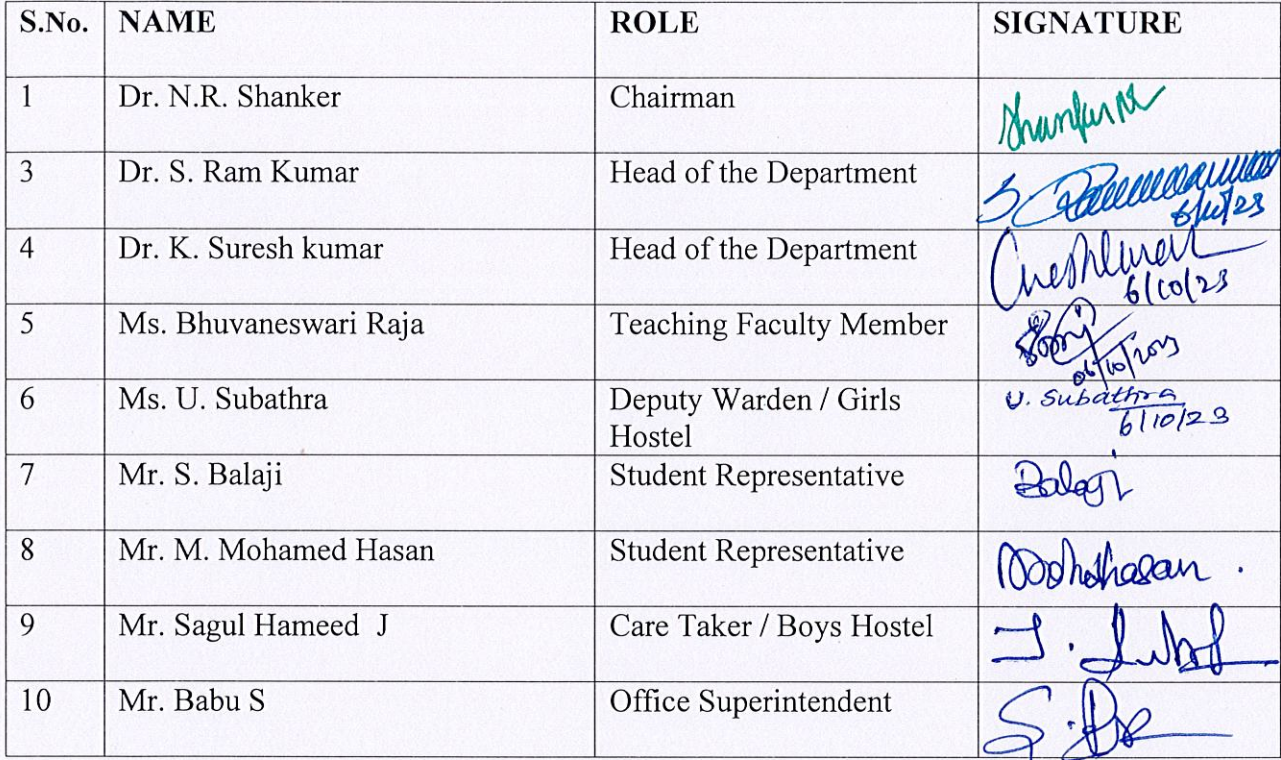 S.No. NAME ROLE SIGNATURE
1 Dr. N.R. Shanker Chairman
3 Dr. S. Ram Kumar Head of the Department S
4 Dr. K. Suresh kumar Head of the Department
6/10/23
5 Ms. Bhuvaneswari Raja Teaching Faculty Member
06/10/2023
6 Ms. U. Subathra Deputy Warden / Girls U. Subathra
Hostel 6/10/23
7 Mr. S. Balaji Student Representative Balaji
8 Mr. M. Mohamed Hasan Student Representative Mohdhasan .
9 Mr. Sagul Hameed J Care Taker / Boys Hostel J.
10 Mr. Babu S Office Superintendent S.